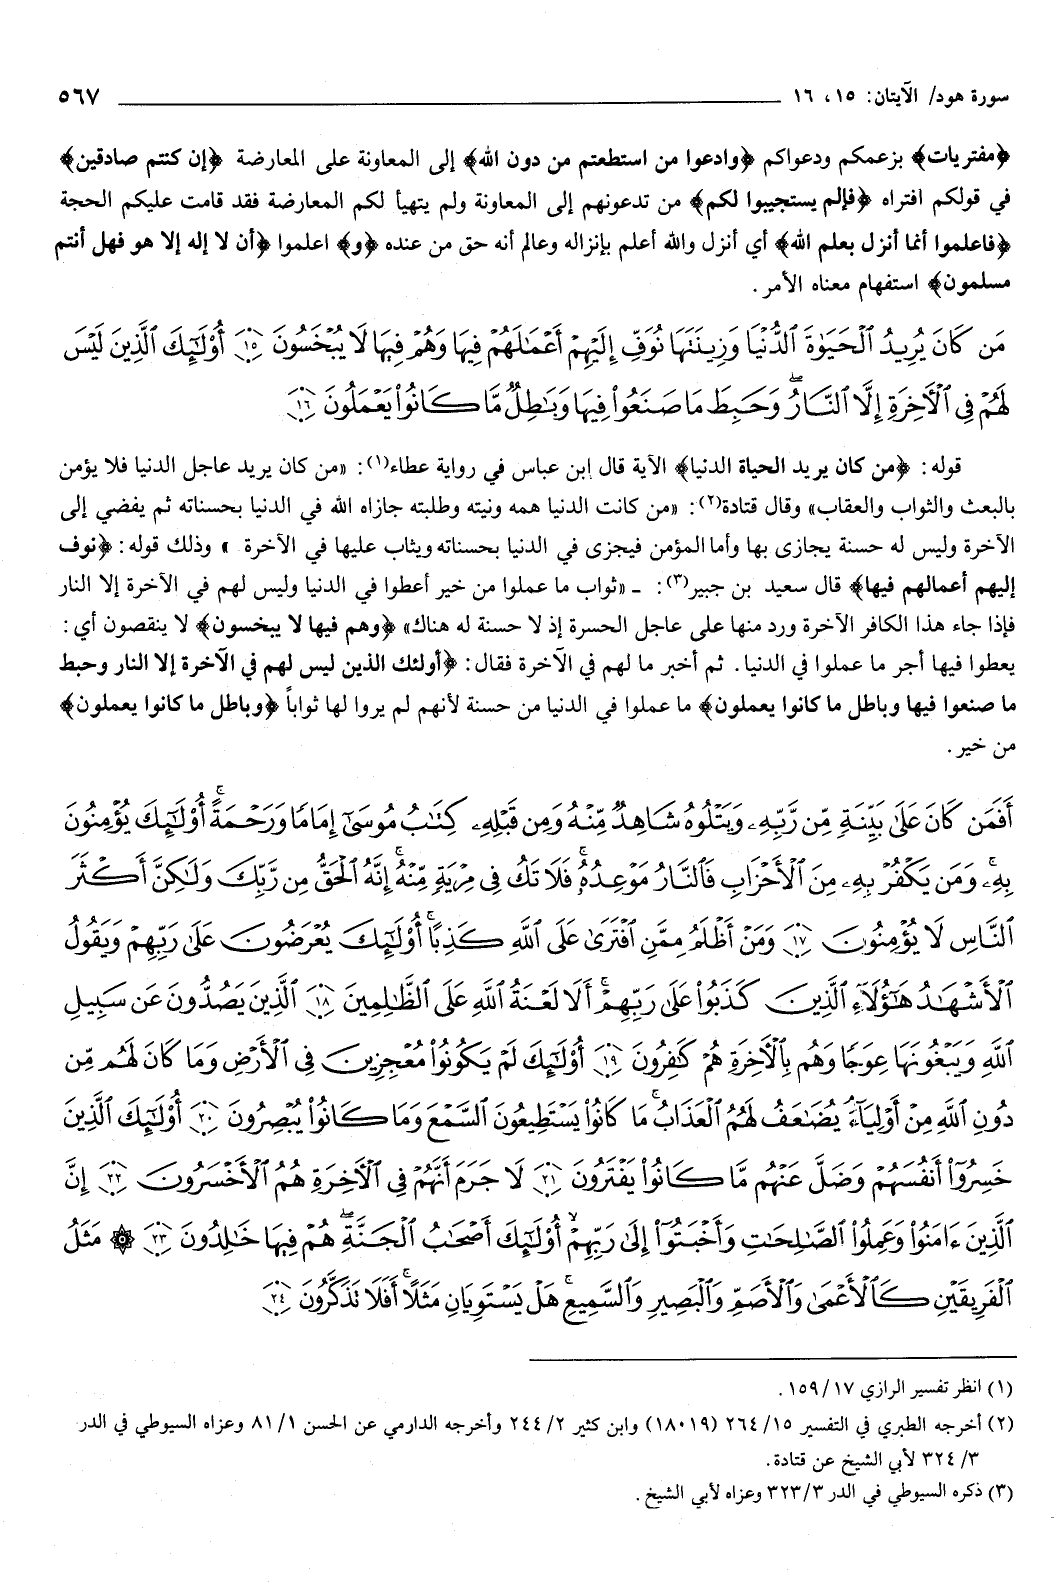 سورة هود/ الآيتان: ١٥، ١٦ ٥٦٧
﴿مفتريات﴾ بزعمكم ودعواكم ﴿وادعوا من استطعتم من دون الله﴾ إلى المعاونة على المعارضة ﴿إن كنتم صادقين﴾
في قولكم افتراه ﴿فإلم يستجيبوا لكم﴾ من تدعونهم إلى المعاونة ولم يتهيأ لكم المعارضة فقد قامت عليكم الحجة
﴿فاعلموا أنما أنزل بعلم الله﴾ أي أنزل والله أعلم بإنزاله وعالم أنه حق من عنده ﴿و﴾ اعلموا ﴿أن لا إله إلا هو فهل أنتم
مسلمون﴾ استفهام معناه الأمر.
مَن كَانَ يُرِيدُ ٱلْحَيَوٰةَ ٱلدُّنْيَا وَزِينَتَهَا نُوَفِّ إِلَيْهِمْ أَعْمَٰلَهُمْ فِيهَا وَهُمْ فِيهَا لَا يُبْخَسُونَ ١٥ أُوْلَٰٓئِكَ ٱلَّذِينَ لَيْسَ
لَهُمْ فِى ٱلْأَخِرَةِ إِلَّا ٱلنَّارُ ۖ وَحَبِطَ مَا صَنَعُوا۟ فِيهَا وَبَٰطِلٌ مَّا كَانُوا۟ يَعْمَلُونَ ١٦
قوله: ﴿من كان يريد الحياة الدنيا﴾ الآية قال إبن عباس في رواية عطاء(١): «من كان يريد عاجل الدنيا فلا يؤمن
بالبعث والثواب والعقاب» وقال قتادة(٢): «من كانت الدنيا همه ونيته وطلبته جازاه الله في الدنيا بحسناته ثم يفضي إلى
الآخرة وليس له حسنة يجازى بها وأما المؤمن فيجزى في الدنيا بحسناته ويثاب عليها في الآخرة » وذلك قوله: ﴿نوف
إليهم أعمالهم فيها﴾ قال سعيد بن جبير(٣): ـ «ثواب ما عملوا من خير أعطوا في الدنيا وليس لهم في الآخرة إلا النار
فإذا جاء هذا الكافر الآخرة ورد منها على عاجل الحسرة إذ لا حسنة له هناك» ﴿وهم فيها لا يبخسون﴾ لا ينقصون أي:
يعطوا فيها أجر ما عملوا في الدنيا. ثم أخبر ما لهم في الآخرة فقال: ﴿أولئك الذين ليس لهم في الآخرة إلا النار وحبط
ما صنعوا فيها وباطل ما كانوا يعملون﴾ ما عملوا في الدنيا من حسنة لأنهم لم يروا لها ثواباً ﴿وباطل ما كانوا يعملون﴾
من خير.
أَفَمَن كَانَ عَلَىٰ بَيِّنَةٍ مِّن رَّبِّهِۦ وَيَتْلُوهُ شَاهِدٌ مِّنْهُ وَمِن قَبْلِهِۦ كِتَٰبُ مُوسَىٰٓ إِمَامًا وَرَحْمَةً ۚ أُوْلَٰٓئِكَ يُؤْمِنُونَ
بِهِۦ ۚ وَمَن يَكْفُرْ بِهِۦ مِنَ ٱلْأَحْزَابِ فَٱلنَّارُ مَوْعِدُهُۥ ۚ فَلَا تَكُ فِى مِرْيَةٍ مِّنْهُ ۚ إِنَّهُ ٱلْحَقُّ مِن رَّبِّكَ وَلَٰكِنَّ أَكْثَرَ
ٱلنَّاسِ لَا يُؤْمِنُونَ ١٧ وَمَنْ أَظْلَمُ مِمَّنِ ٱفْتَرَىٰ عَلَى ٱللَّهِ كَذِبًا ۚ أُوْلَٰٓئِكَ يُعْرَضُونَ عَلَىٰ رَبِّهِمْ وَيَقُولُ
ٱلْأَشْهَٰدُ هَٰٓؤُلَآءِ ٱلَّذِينَ كَذَبُوا۟ عَلَىٰ رَبِّهِمْ ۚ أَلَا لَعْنَةُ ٱللَّهِ عَلَى ٱلظَّٰلِمِينَ ١٨ ٱلَّذِينَ يَصُدُّونَ عَن سَبِيلِ
ٱللَّهِ وَيَبْغُونَهَا عِوَجًا وَهُم بِٱلْأَخِرَةِ هُمْ كَٰفِرُونَ ١٩ أُوْلَٰٓئِكَ لَمْ يَكُونُوا۟ مُعْجِزِينَ فِى ٱلْأَرْضِ وَمَا كَانَ لَهُم مِّن
دُونِ ٱللَّهِ مِنْ أَوْلِيَآءَ ۘ يُضَٰعَفُ لَهُمُ ٱلْعَذَابُ ۚ مَا كَانُوا۟ يَسْتَطِيعُونَ ٱلسَّمْعَ وَمَا كَانُوا۟ يُبْصِرُونَ ٢٠ أُوْلَٰٓئِكَ ٱلَّذِينَ
خَسِرُوٓا۟ أَنفُسَهُمْ وَضَلَّ عَنْهُم مَّا كَانُوا۟ يَفْتَرُونَ ٢١ لَا جَرَمَ أَنَّهُمْ فِى ٱلْأَخِرَةِ هُمُ ٱلْأَخْسَرُونَ ٢٢ إِنَّ
ٱلَّذِينَ ءَامَنُوا۟ وَعَمِلُوا۟ ٱلصَّٰلِحَٰتِ وَأَخْبَتُوٓا۟ إِلَىٰ رَبِّهِمْ ۙ أُوْلَٰٓئِكَ أَصْحَٰبُ ٱلْجَنَّةِ ۖ هُمْ فِيهَا خَٰلِدُونَ ٢٣ ۞ مَثَلُ
ٱلْفَرِيقَيْنِ كَٱلْأَعْمَىٰ وَٱلْأَصَمِّ وَٱلْبَصِيرِ وَٱلسَّمِيعِ ۚ هَلْ يَسْتَوِيَانِ مَثَلًا ۚ أَفَلَا تَذَكَّرُونَ ٢٤
(١) انظر تفسير الرازي ١٧/ ١٥٩.
(٢) أخرجه الطبري في التفسير ١٥/ ٢٦٤ (١٨٠١٩) وابن كثير ٢/ ٢٤٤ وأخرجه الدارمي عن الحسن ١/ ٨١ وعزاه السيوطي في الدر
٣/ ٣٢٤ لأبي الشيخ عن قتادة.
(٣) ذكره السيوطي في الدر ٣/ ٣٢٣ وعزاه لأبي الشيخ.